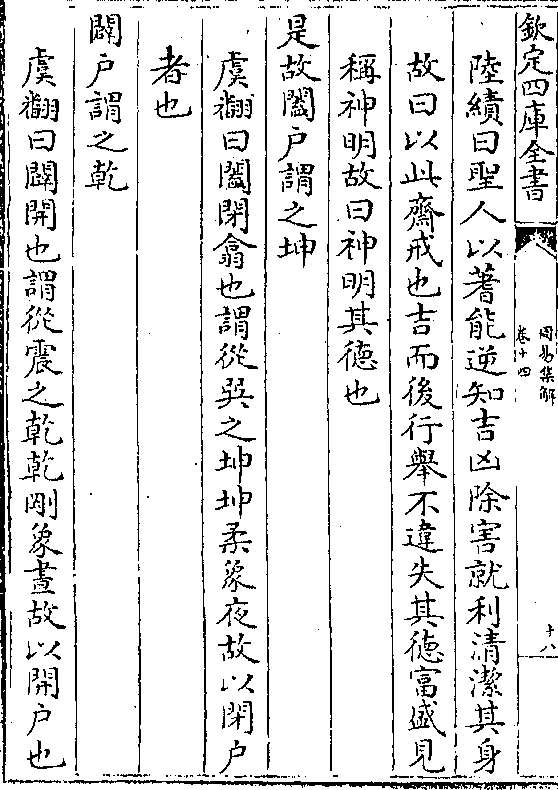 欽定四庫全書
周易集解
卷十四
十八
陸績曰聖人以蓍能逆知吉凶除害就利清潔其身
故曰以此齋戒也吉而後行舉不違失其德富盛見
稱神明故曰神明其德也
是故闔戶謂之坤
虞翻曰闔閉翕也謂從巽之坤坤柔象夜故以閉戶
者也
闢戶謂之乾
虞翻曰闢開也謂從震之乾乾剛象晝故以開戶也